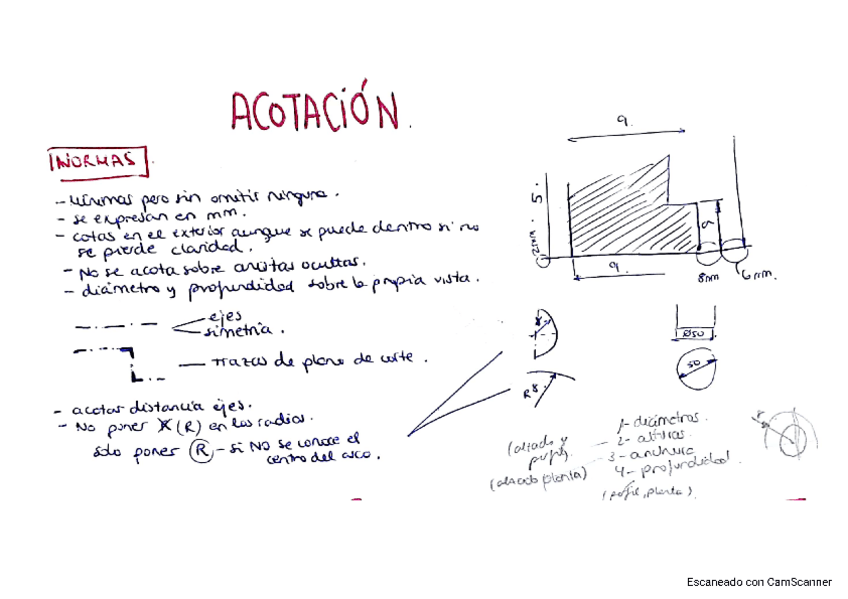 ACOTACIÓN.
NORMAS
- Mínimas pero sin omitir ninguna.
- se expresan en mm.
- cotas en el exterior aunque se puede dentro si no
se pierde claridad.
- No se acota sobre aristas ocultas.
- diámetro y profundidad sobre la propia vista.
ejes
simetría.
trazas de plano de corte.
- acotar distancia ejes.
- No poner (R) en los radios.
sólo poner (R) - si NO se conoce el
centro del arco.
9.
5.
9
9.
8mm
6mm.
R8.
Ø50
50
1- diámetros.
(alzado y
perfil)
2- alturas.
3- anchura
(alzado planta)
4- profundidad.
(perfil, planta)
r
Escaneado con CamScanner